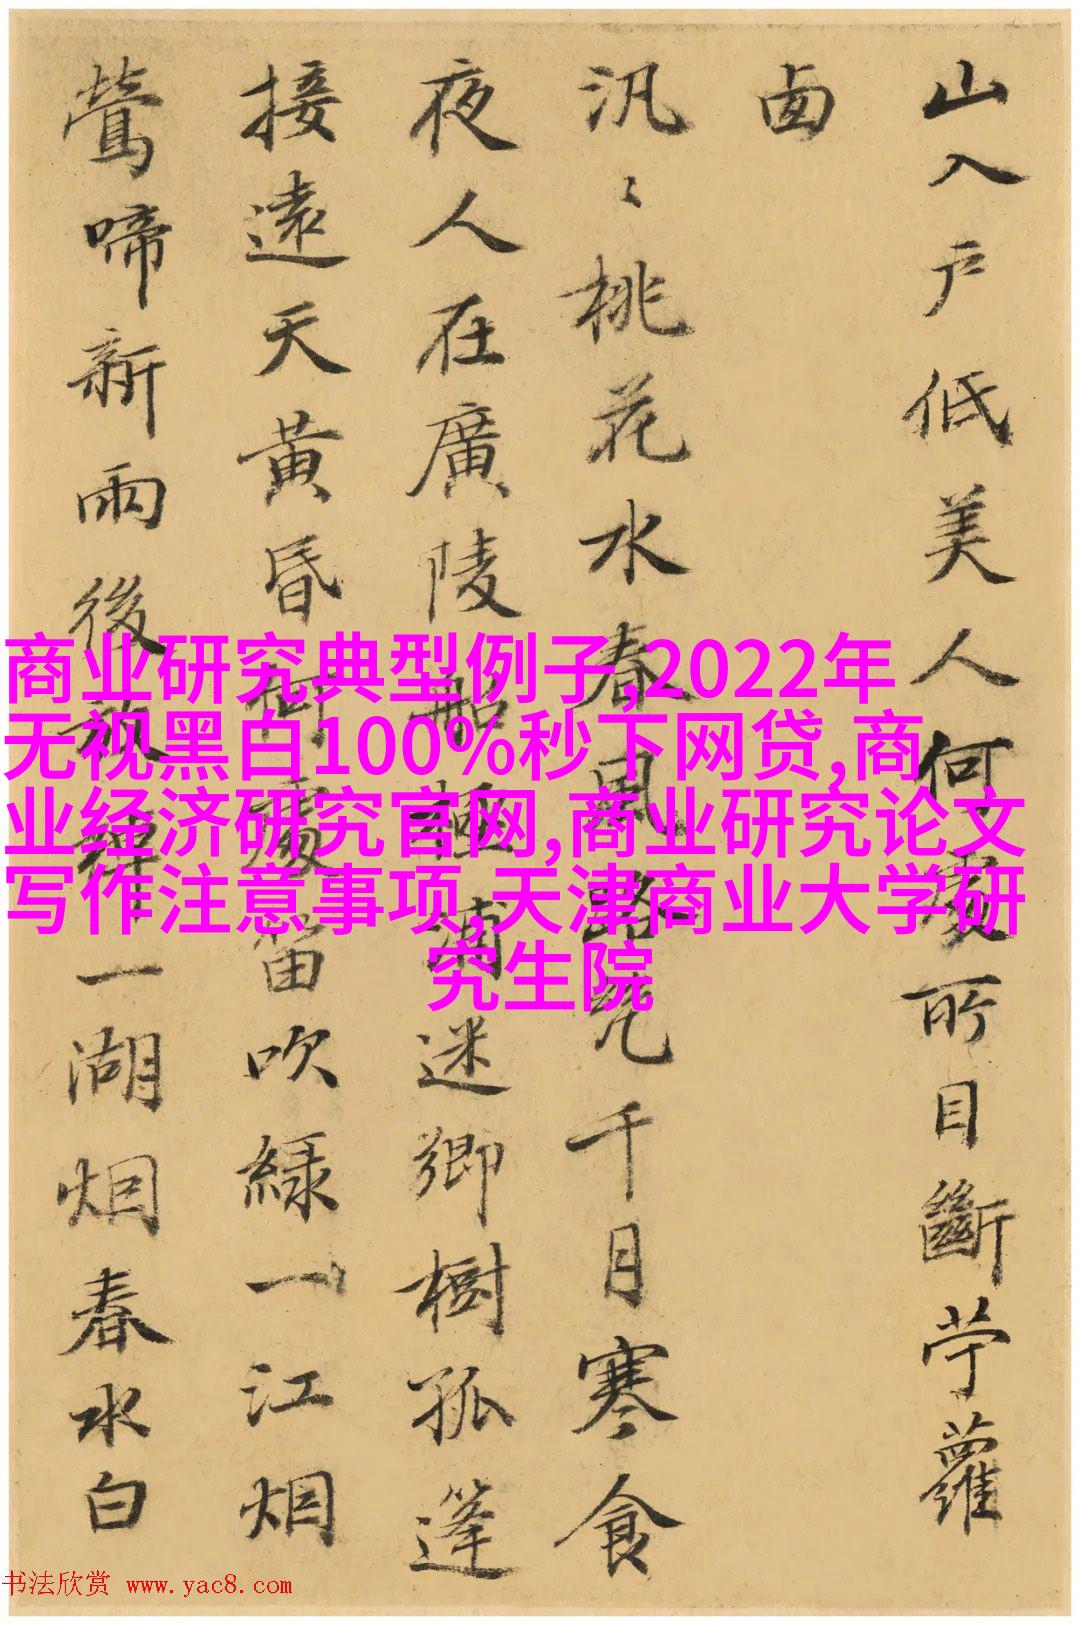 山入户低美人何處所目斷苧蘿
汎〻桃花水春風路千月寒食
夜人在廣陵船極浦迷鄉樹孤篷
接遠天黄昏何處笛吹緑一江烟
鶯啼新雨後放一湖烟春水白
商业研究典型例子,2022年
无视黑白100%秒下网贷,商
业经济研究官网,商业研究论文
写作注意事项,天津商业大学研
究生院
书法欣赏 www.yac8.com